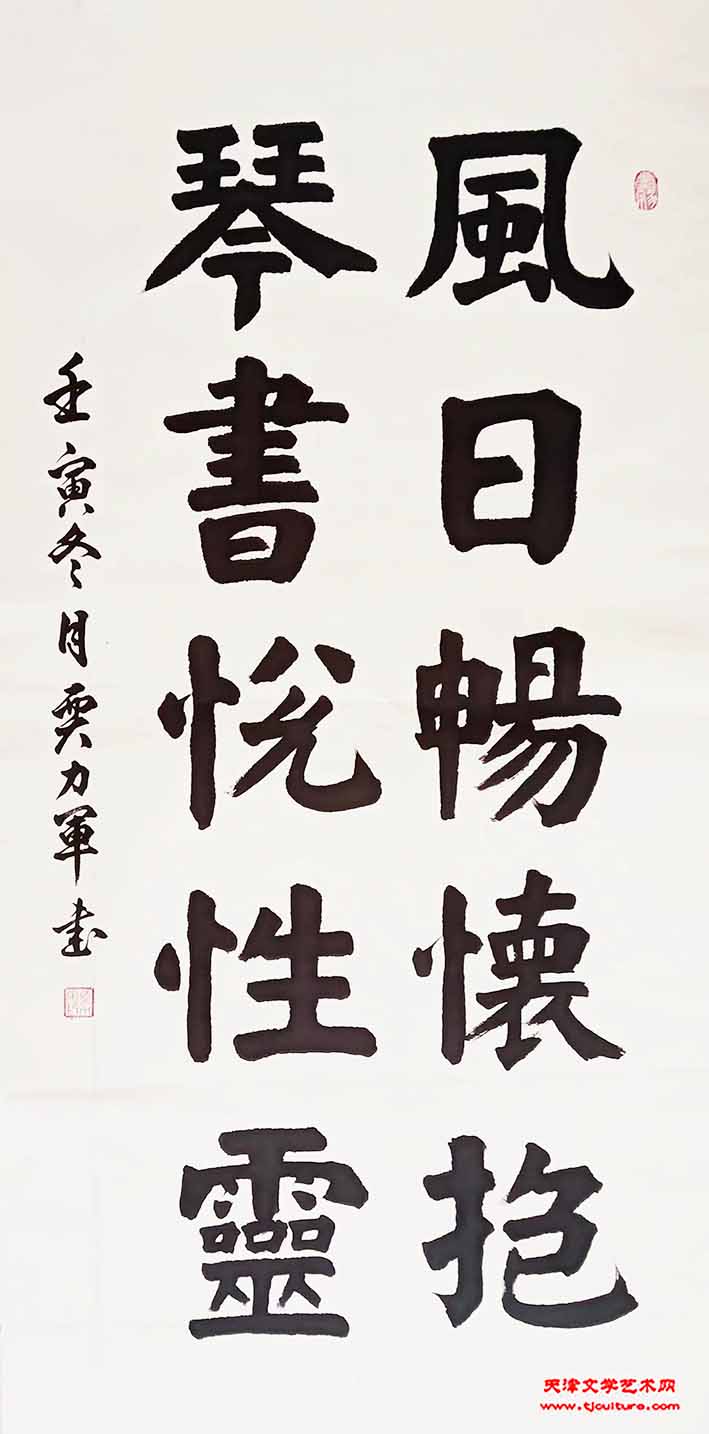 風日暢懷抱
琴書悅性靈
壬寅冬月贾力軍书
天津文学艺术网
www.tjculture.com